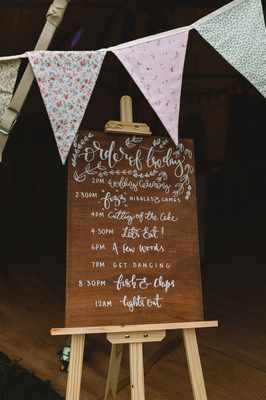 order of the day
2PM Wedding Ceremony
2·30PM Fizz, NIBBLES & GAMES
4PM Cutting of the Cake
4·30PM Let's Eat!
6PM A few Words
7PM GET DANCING
8·30PM Fish & Chips
12AM lights out